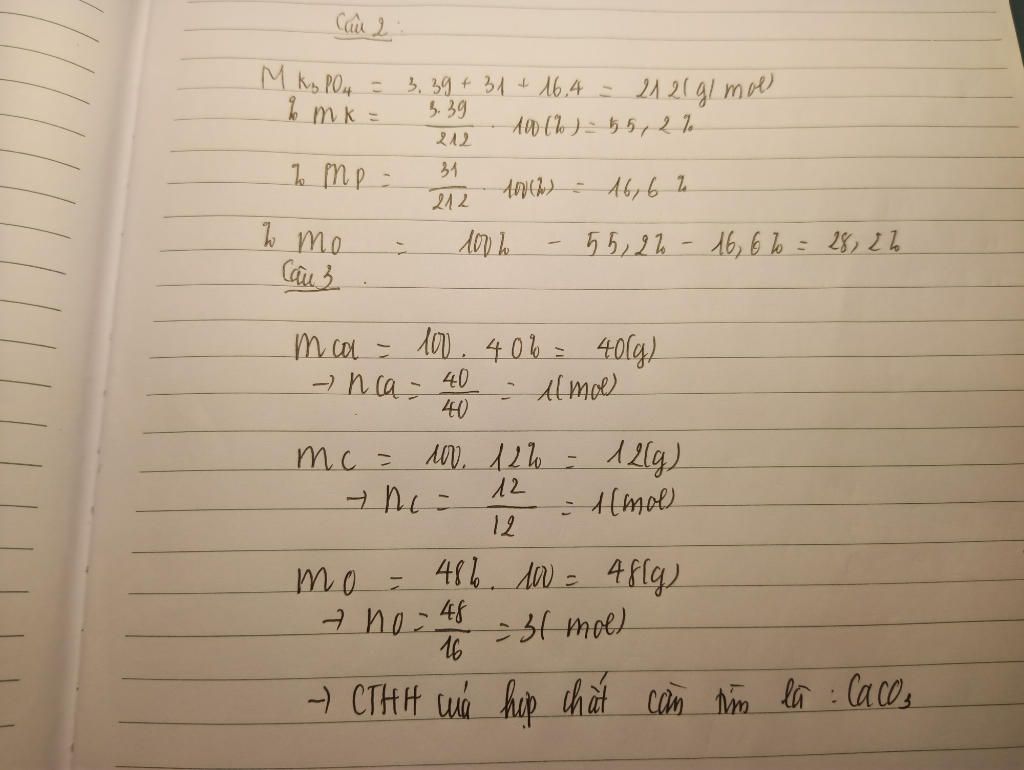 Câu 2:
M K₃PO₄ = 3.39 + 31 + 16.4 = 212(g/mol)
% mK = 3.39/212 . 100(%) = 55,2%
% mP = 31/212 . 100(%) = 16,6%
% mO = 100% - 55,2% - 16,6% = 28,2%
Câu 3.
mCa = 100. 40% = 40(g)
→ nCa = 40/40 = 1(mol)
mC = 100. 12% = 12(g)
→ nC = 12/12 = 1(mol)
mO = 48%. 100 = 48(g)
→ nO = 48/16 = 3(mol)
→ CTHH của hợp chất cần tìm là : CaCO₃